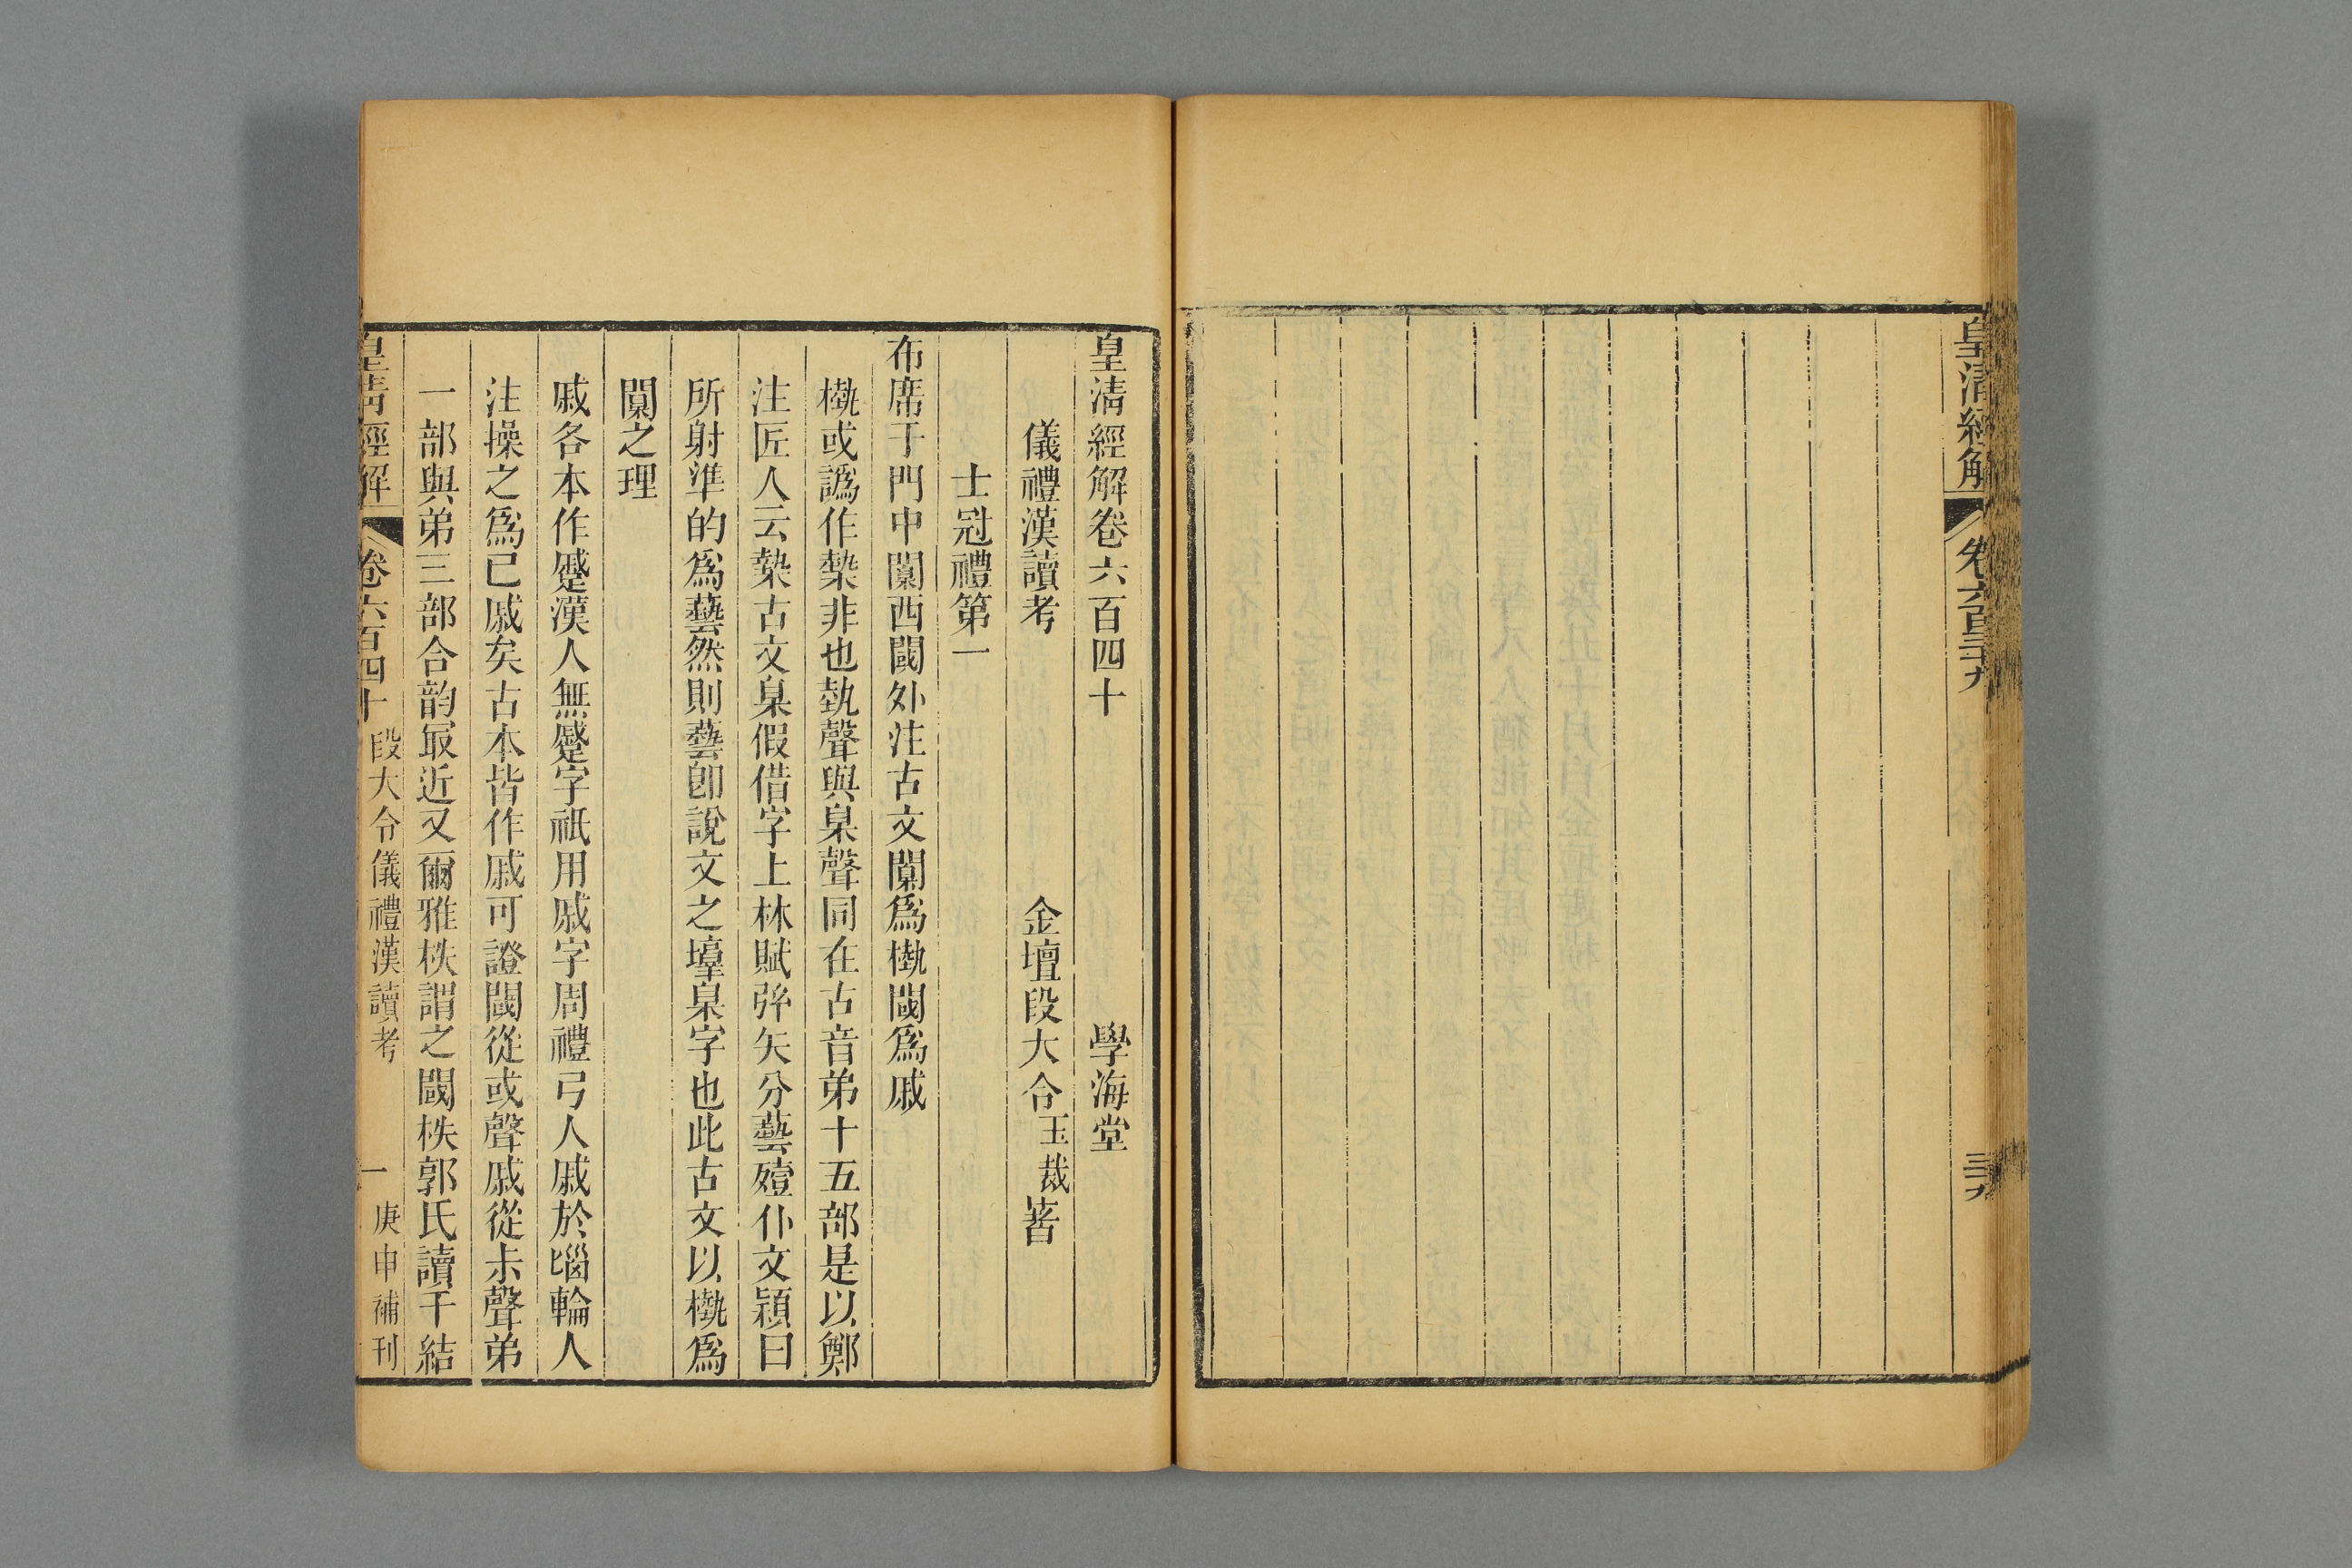 皇清經解 卷六百三十九 三十九
皇清經解卷六百四十 學海堂
儀禮漢讀考 金壇段大令玉裁著
士冠禮第一
布席于門中闑西閾外注古文闑爲槷閾爲蹙
槷或譌作槷非也埶聲與臬聲同在古音弟十五部是以鄭
注匠人云槷古文臬假借字上林賦弦矢分藝殪仆文穎曰
所射準的爲藝然則藝卽說文之𡑞臬字也此古文以槷爲
闑之理
戚各本作蹙漢人無蹙字祇用戚字周禮弓人戚於𠜶輪人
注操之爲已戚矣古本皆作戚可證閾從或聲戚從尗聲弟
一部與弟三部合韵㝡近又爾雅柣謂之閾柣郭氏讀千結
皇清經解 卷六百四十 段大令儀禮漢讀考 一 庚申補刊